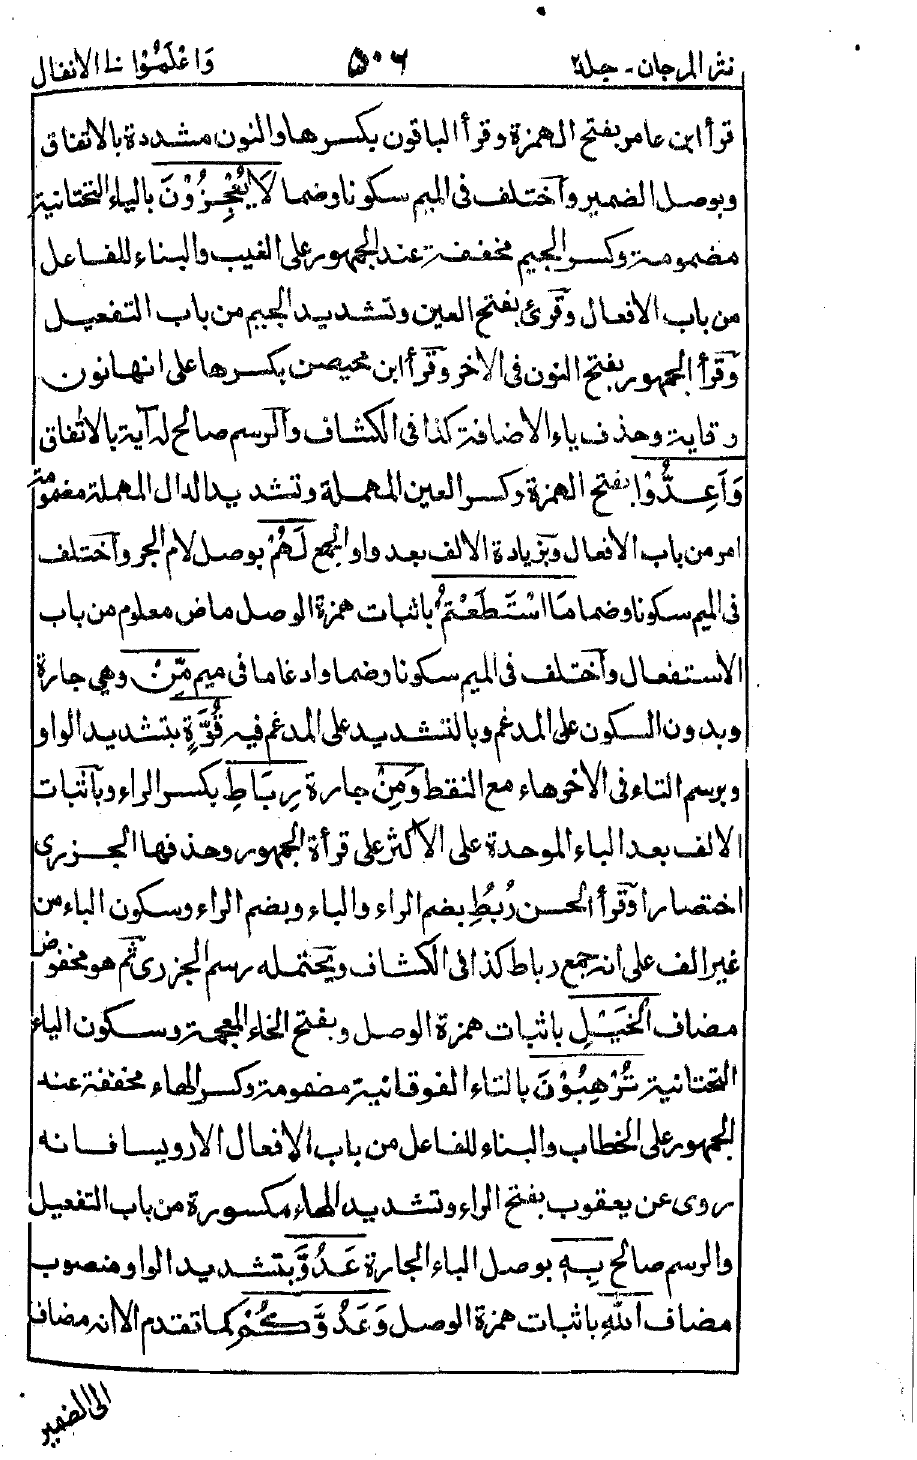 نثر المرجان - جلد۲ ۵۰۶ وَاعْلَمُوْٓا ۱۰ الانفال
قرأ ابن عامر بفتح الهمزة وقرأ الباقون بكسرها والنون مشددة بالاتفاق
وبوصل الضمير وآختلف فى الميم سكونا وضما لَا يُعْجِزُوْنَ بالياء التحتانية
مضمومة وكسر الجيم مخففة عند الجمهور على الغيب والبناء للفاعل
من باب الافعال وقرئ بفتح العين وتشديد الجيم من باب التفعيل
وقرأ الجمهور بفتح النون فى الاخر وقرأ ابن محيصن بكسرها على انها نون
وقاية وحذف ياء الاضافة كذا فى الكشاف وآلرسم صالح له آية بالاتفاق
وَاَعِدُّوْا بفتح الهمزة وكسر العين المهملة وتشديد الدال المهملة مضمومة
امر من باب الافعال وبزيادة الالف بعد واو الجمع لَهُمْ بوصل لام الجر وآختلف
فى الميم سكونا وضما مَا اسْتَطَعْتُمْ باثبات همزة الوصل ماض معلوم من باب
الاستفعال وآختلف فى الميم سكونا وضما وادغاما فى ميم مِّنْ وهى جارة
وبدون السكون على المدغم وبالتشديد على المدغم فيه قُوَّةٍ بتشديد الواو
وبرسم التاء فى الاخر هاء مع النقط وَمِنْ جارة رِبَاطِ بكسر الراء وبآثبات
الالف بعد الباء الموحدة على الاكثر على قرأة الجمهور وحذفها الجزرى
اختصارا وقرأ الحسن رُبُطِ بضم الراء والباء وبضم الراء وسكون الباء من
غير الف على انه جمع رباط كذا فى الكشاف ويحتمله رسم الجزرى ثم هو مخفوض
مضاف الْخَيْلِ باثبات همزة الوصل وبفتح الخاء المعجمة وسكون الياء
التحتانية تُرْهِبُوْنَ بالتاء الفوقانية مضمومة وكسر الهاء مخففة عند
الجمهور على الخطاب والبناء للفاعل من باب الافعال الا رويسا فانه
روى عن يعقوب بفتح الراء وتشديد الهاء مكسورة من باب التفعيل
والرسم صالح بِهٖ بوصل الباء الجارة عَدُوَّ بتشديد الواو منصوب
مضاف اللهِ باثبات همزة الوصل وَعَدُوَّكُمْ كما تقدم الا انه مضاف
الى الضمير